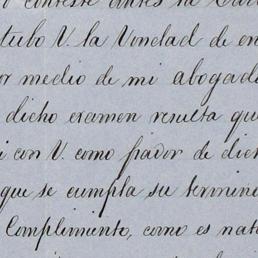 conteste antes
tubo V. la Vondad de en
or medio de mi abogad
dicho examen resulta qu
i con V. como fiador de dic
que se cumpla su termin
Complimiento, como es nat